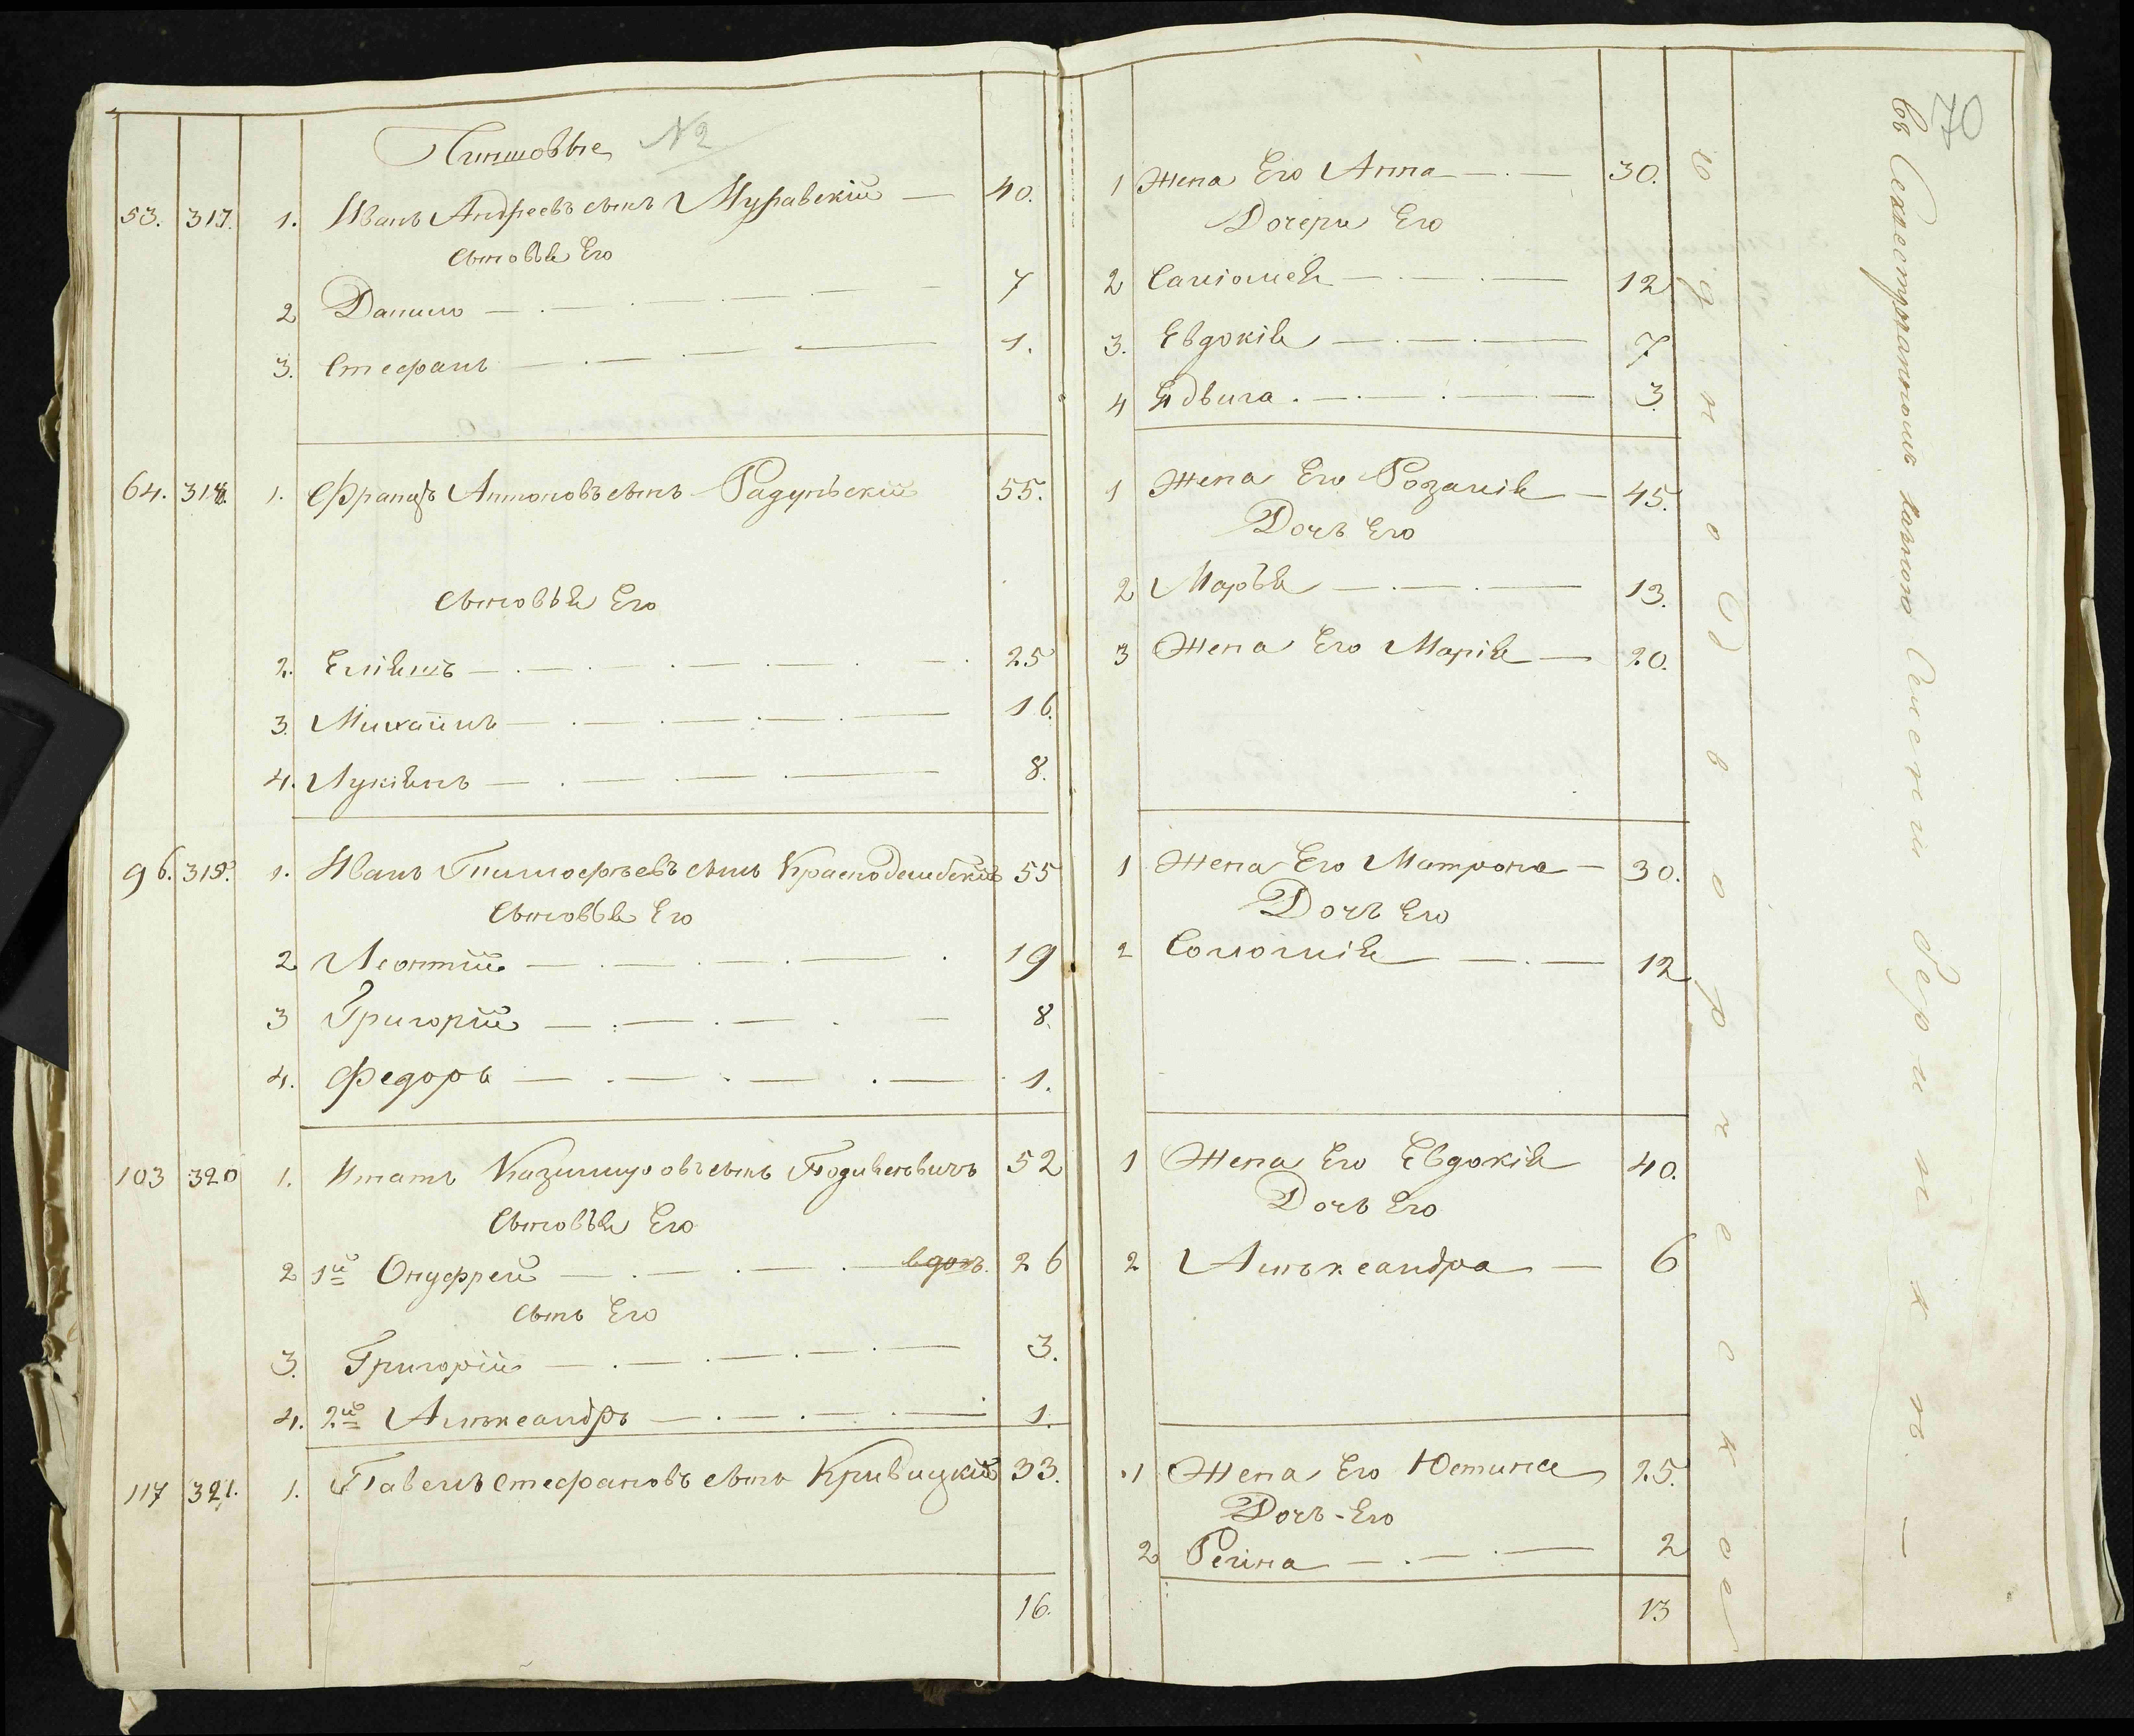 Чиншовые № 2
53. 317. 1. Иванъ Андреевъ сынъ Муравскій — 40.
Сыновья Его
2 Данило 7
3. Стефанъ 1.
64. 318. 1. Францъ Антоновъ сынъ Радульскій 55.
Сыновья Его
2. 25
3. Михайлъ 16.
4. Лукіянъ 8.
96. 319. 1. Иванъ Тимофѣевъ сынъ 55
Сыновья Его
2 Леонтій 19
3 Григорій 8.
4. Федоръ 1.
103 320 1. Игнатъ Казимировъ сынъ 52
Сыновья Его
2 1й Онуфрей вдовъ. 26
Сынъ Его
3. Григорій 3.
4. 2й Александръ 1.
117 321. 1. Павелъ Стефановъ сынъ Кривицкій 33.
16.
70
1 Жена Его Анна 30.
Дочери Его
2 Саломея 12
3. Евдокія 7
4 Ядвига 3.
1 Жена Его Розалія 45.
Дочь Его
2 Марья 13.
3 Жена Его Марія 20.
1 Жена Его Матрона 30.
Дочь Его
2 Соломія 12
1 Жена Его Евдокія 40.
Дочь Его
2 Александра 6
1 Жена Его Юстина 25.
Дочь Его
2 Регина 2
13
однодворческое
въ